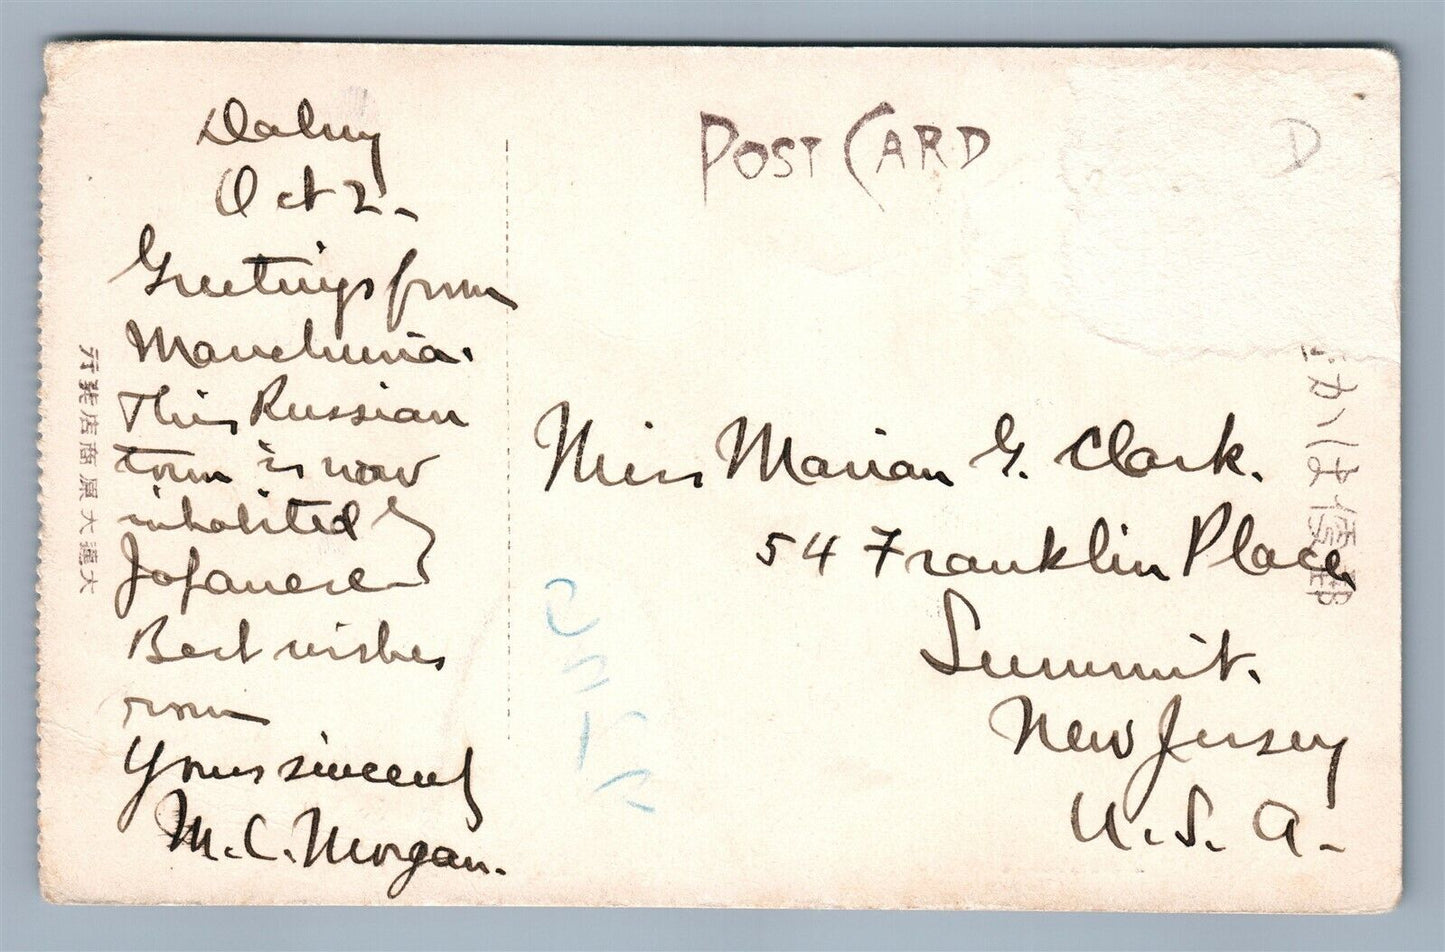 Dalny
Oct 2-
Greetings from
Manchuria.
This Russian
town is now
inhabited by
Japanese-
Best wishes
from
Yours sincerely
M.C. Morgan.
POST CARD
D
Miss Marian G. Clark.
54 Franklin Place
Summit.
New Jersey
U.S.A.-
きかは便郵
大連大原商店發行